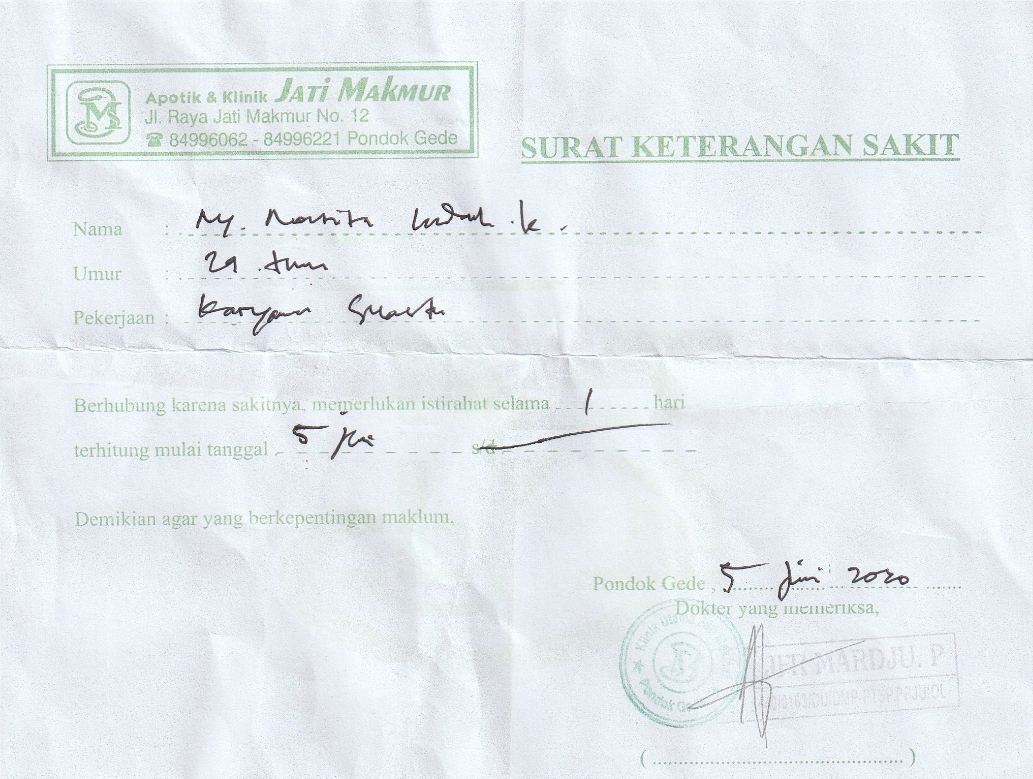 Apotik & Klinik JATI MAKMUR
Jl. Raya Jati Makmur No. 12
☎ 84996062 - 84996221 Pondok Gede
SURAT KETERANGAN SAKIT
Nama : Ny. k.
Umur : 29
Pekerjaan : Karyawan Swasta
Berhubung karena sakitnya, memerlukan istirahat selama 1 hari
terhitung mulai tanggal 5 juni s/d
Demikian agar yang berkepentingan maklum.
Pondok Gede, 5 juni 2020
Dokter yang memeriksa,
MARDJU. P